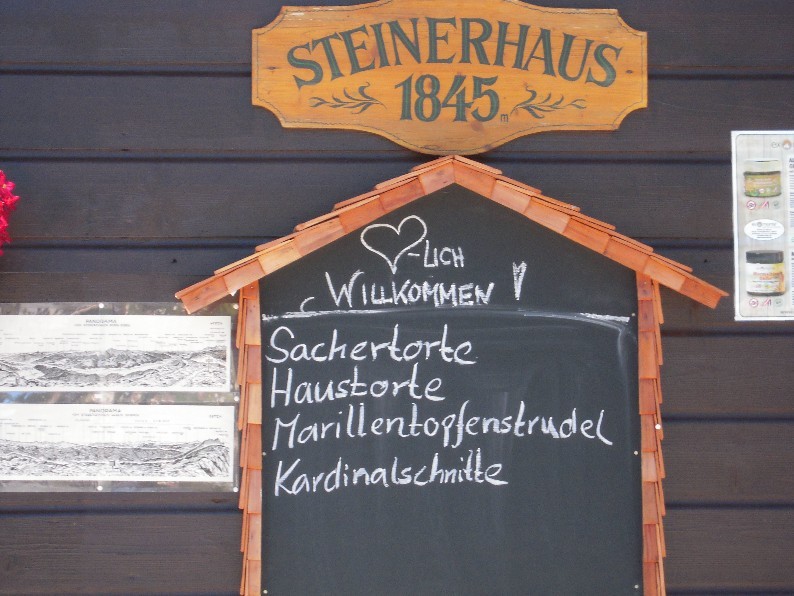 STEINERHAUS
1845 m
-LICH
WILLKOMMEN !
Sachertorte
Haustorte
Marillentopfenstrudel
Kardinalschnitte
PANORAMA
PANORAMA